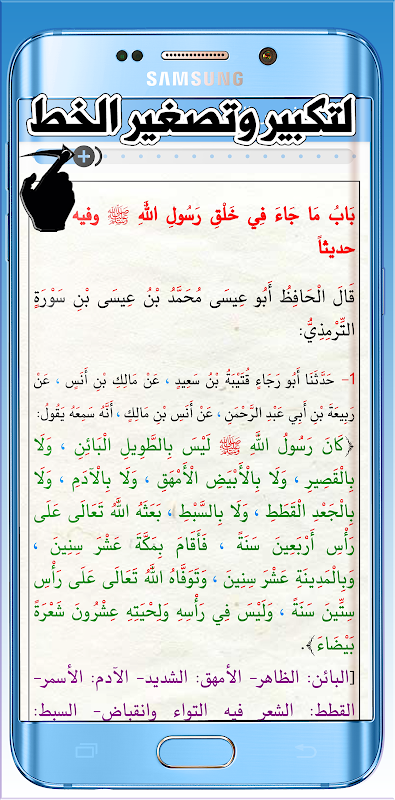 SAMSUNG
لتكبير وتصغير الخط
بَابُ مَا جَاءَ فِي خَلْقِ رَسُولِ اللَّهِ ﷺ وفيه
حديثاً
قَالَ الْحَافِظُ أَبُو عِيسَى مُحَمَّدُ بْنُ عِيسَى بْنِ سَوْرَةٍ
التِّرْمِذِيُّ:
1– حَدَّثَنَا أَبُو رَجَاءٍ قُتَيْبَةُ بْنُ سَعِيدٍ ، عَنْ مَالِكِ بْنِ أَنَسٍ ، عَنْ
رَبِيعَةَ بْنِ أَبِي عَبْدِ الرَّحْمَنِ ، عَنْ أَنَسِ بْنِ مَالِكٍ ، أَنَّهُ سَمِعَهُ يَقُولُ:
﴿كَانَ رَسُولُ اللَّهِ ﷺ لَيْسَ بِالطَّوِيلِ الْبَائِنِ ، وَلَا
بِالْقَصِيرِ ، وَلَا بِالْأَبْيَضِ الْأَمْهَقِ ، وَلَا بِالْآدَمِ ، وَلَا
بِالْجَعْدِ الْقَطَطِ ، وَلَا بِالسَّبْطِ ، بَعَثَهُ اللَّهُ تَعَالَى عَلَى
رَأْسِ أَرْبَعِينَ سَنَةً ، فَأَقَامَ بِمَكَّةَ عَشْرَ سِنِينَ ،
وَبِالْمَدِينَةِ عَشْرَ سِنِينَ ، وَتَوَفَّاهُ اللَّهُ تَعَالَى عَلَى رَأْسِ
سِتِّينَ سَنَةً ، وَلَيْسَ فِي رَأْسِهِ وَلِحْيَتِهِ عِشْرُونَ شَعْرَةً
بَيْضَاءَ﴾.
[البائن: الظاهر– الأمهق: الشديد– الآدم: الأسمر–
القطط: الشعر فيه التواء وانقباض– السبط: